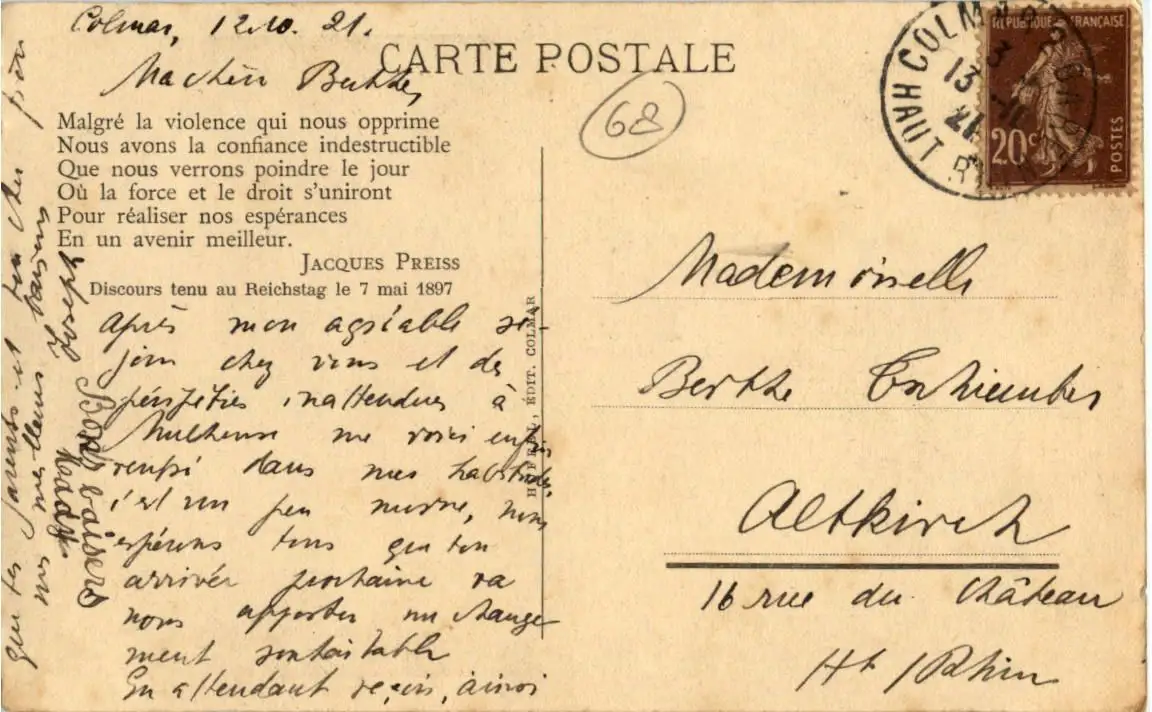 Colmar, 12.10.21.
CARTE POSTALE
Ma chère Berthe,
68
Malgré la violence qui nous opprime
Nous avons la confiance indestructible
Que nous verrons poindre le jour
Où la force et le droit s'uniront
Pour réaliser nos espérances
En un avenir meilleur.
JACQUES PREISS
Discours tenu au Reichstag le 7 mai 1897
après mon agréable sé-
jour chez vous et des
péripéties inattendues à
Mulhouse me voici enfin
dans mes habitudes
c'est un peu morne, nous
espérons tous que ton
arrivée prochaine va
nous apporter un change
ment souhaitable
En attendant reçois, ainsi
que tes parents et ton cher
mes meilleurs baisers
Joseph
Bons baisers
ÉDIT. COLMAR
COLMAR
HAUT RHIN
13
RÉPUBLIQUE FRANÇAISE
20c
POSTES
Mademoiselle
Berthe
Altkirch
16 rue du Château
Ht Rhin